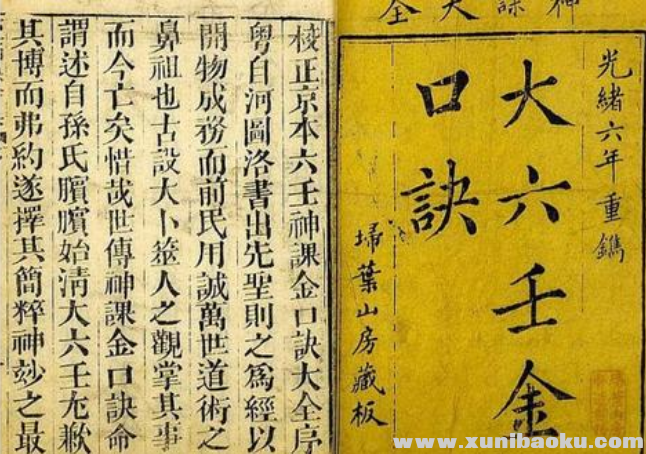 神課大全
光緒六年重鐫
大六壬金
口訣
埽葉山房藏板
校正京本六壬神課金口訣大全序
粵自河圖洛書出先聖則之爲經以
開物成務而前民用誠萬世道術之
鼻祖也古設大卜筮人之觀掌其事
而今亡矣惜哉世傳神課金口訣命
謂述自孫氏臏臏始清大六壬尤歉
其博而弗約遂擇其簡粹神妙之最
www.xunibaoku.com